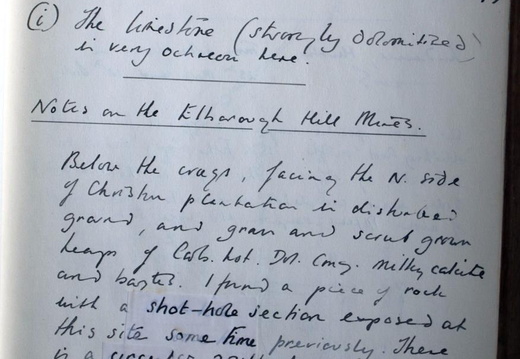 (i) The limestone (strongly dolomitized)
is very ochreous here.
Notes on the Elborough Hill Mines.
Below the crags, facing the N. side
of Christon plantation is disturbed
ground, and grass and scrub grown
heaps of Carb. Lst. Dol. Cong. milky calcite
and barytes. I found a piece of rock
with a shot-hole section exposed at
this site some time previously. There
is a